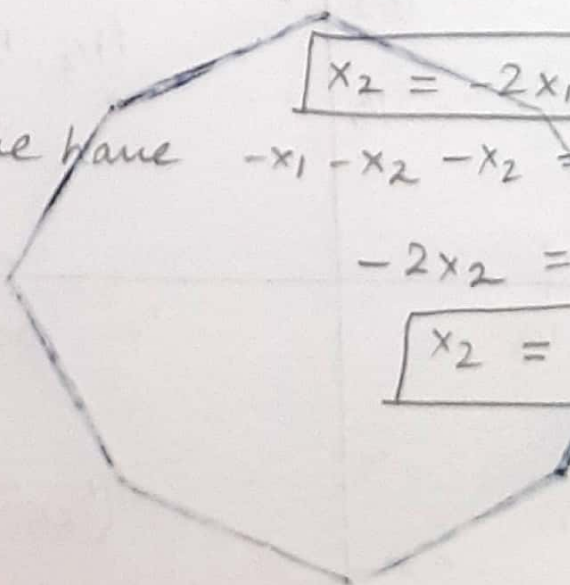 x₂ = -2x₁
we have -x₁ - x₂ - x₂ =
-2x₂ =
x₂ =